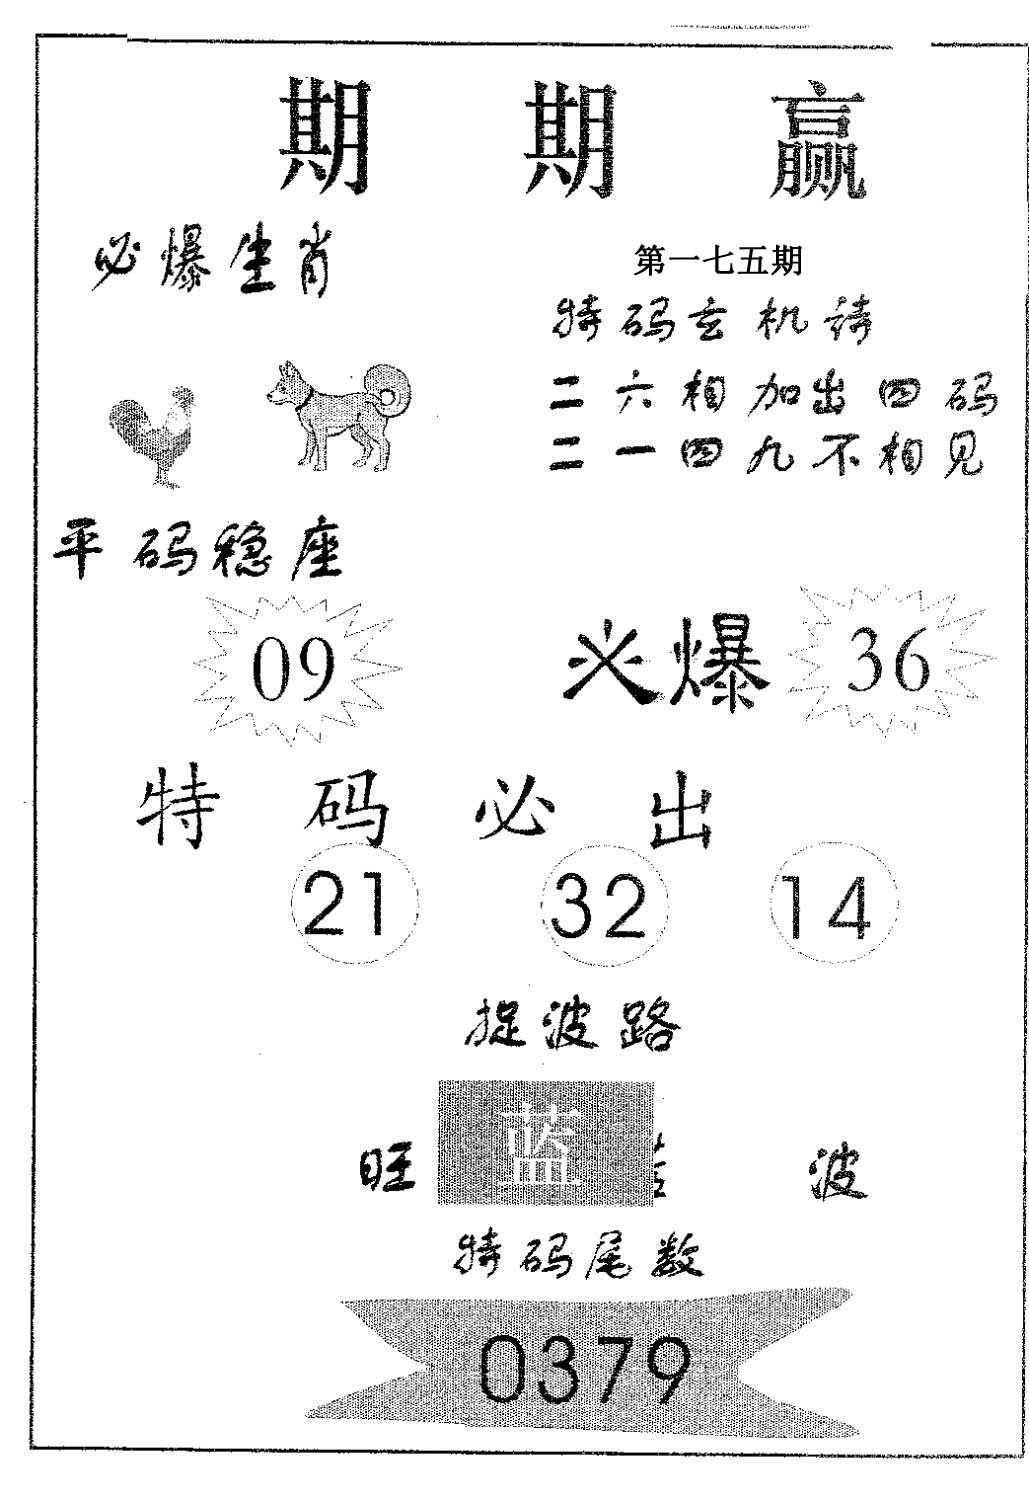 期期赢
必爆生肖
第一七五期
特码玄机诗
二六相加出四码
二一四九不相见
平码稳座
09
必爆
36
特码必出
21 32 14
捉波路
旺 蓝 波
特码尾数
0379